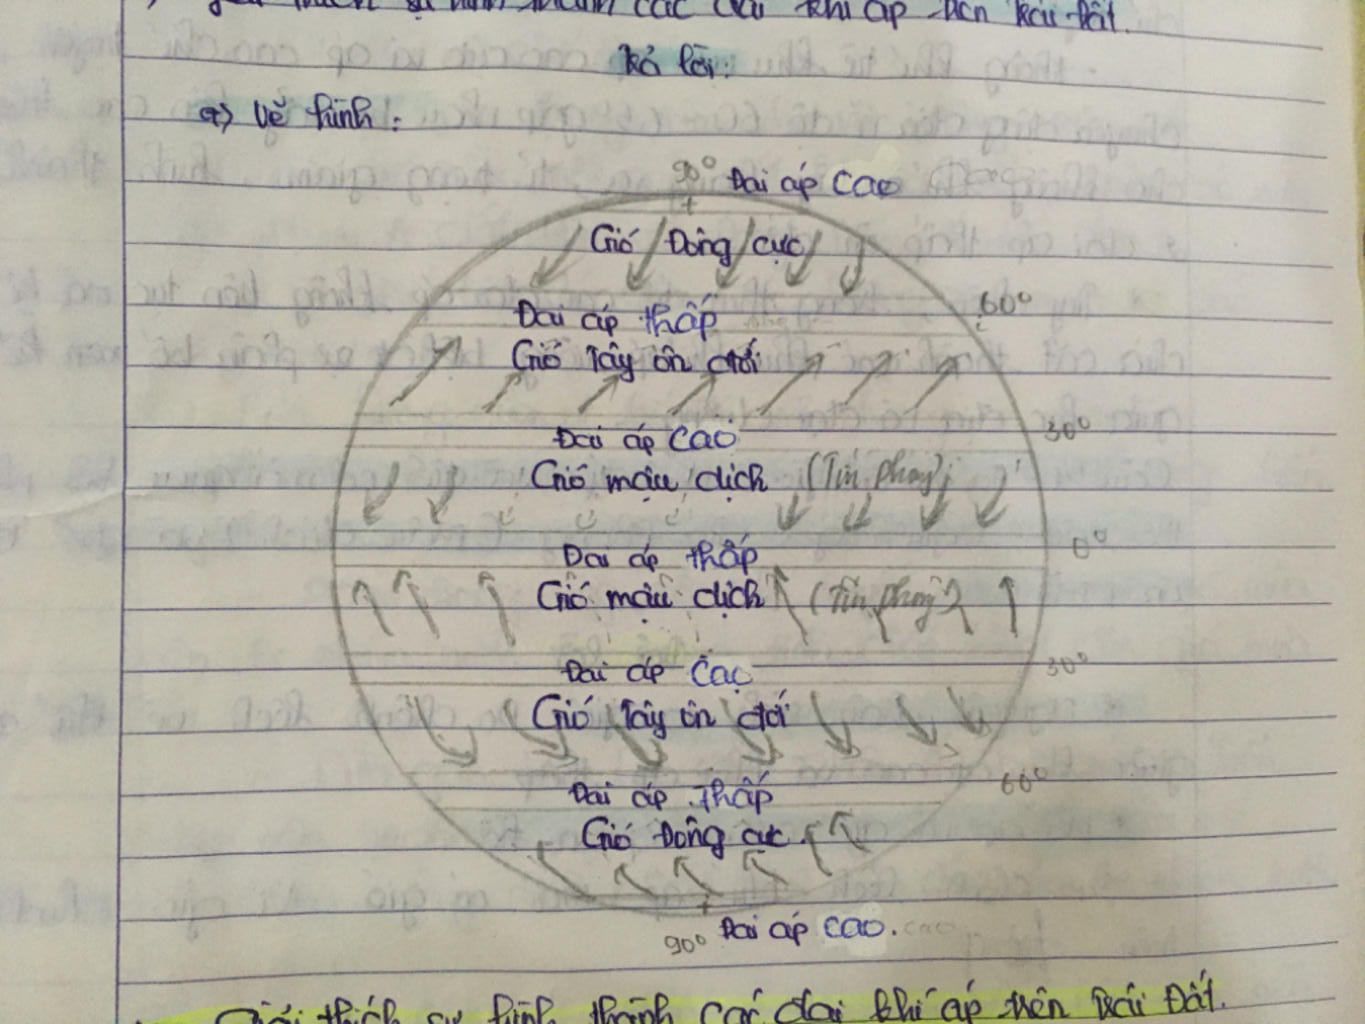 các đai khí áp trên trái đất.
Trả lời:
a) Vẽ hình:
90° Đai áp cao
Gió Đông cực
60°
Đai áp thấp
Gió Tây ôn đới
30°
Đai áp cao
Gió mậu dịch (Tín phong)
0°
Đai áp thấp
Gió mậu dịch (Tín phong)
30°
Đai áp cao
Gió Tây ôn đới
60°
Đai áp thấp
Gió Đông cực
90° Đai áp cao.
Giải thích sự hình thành các đai khí áp trên trái Đất.